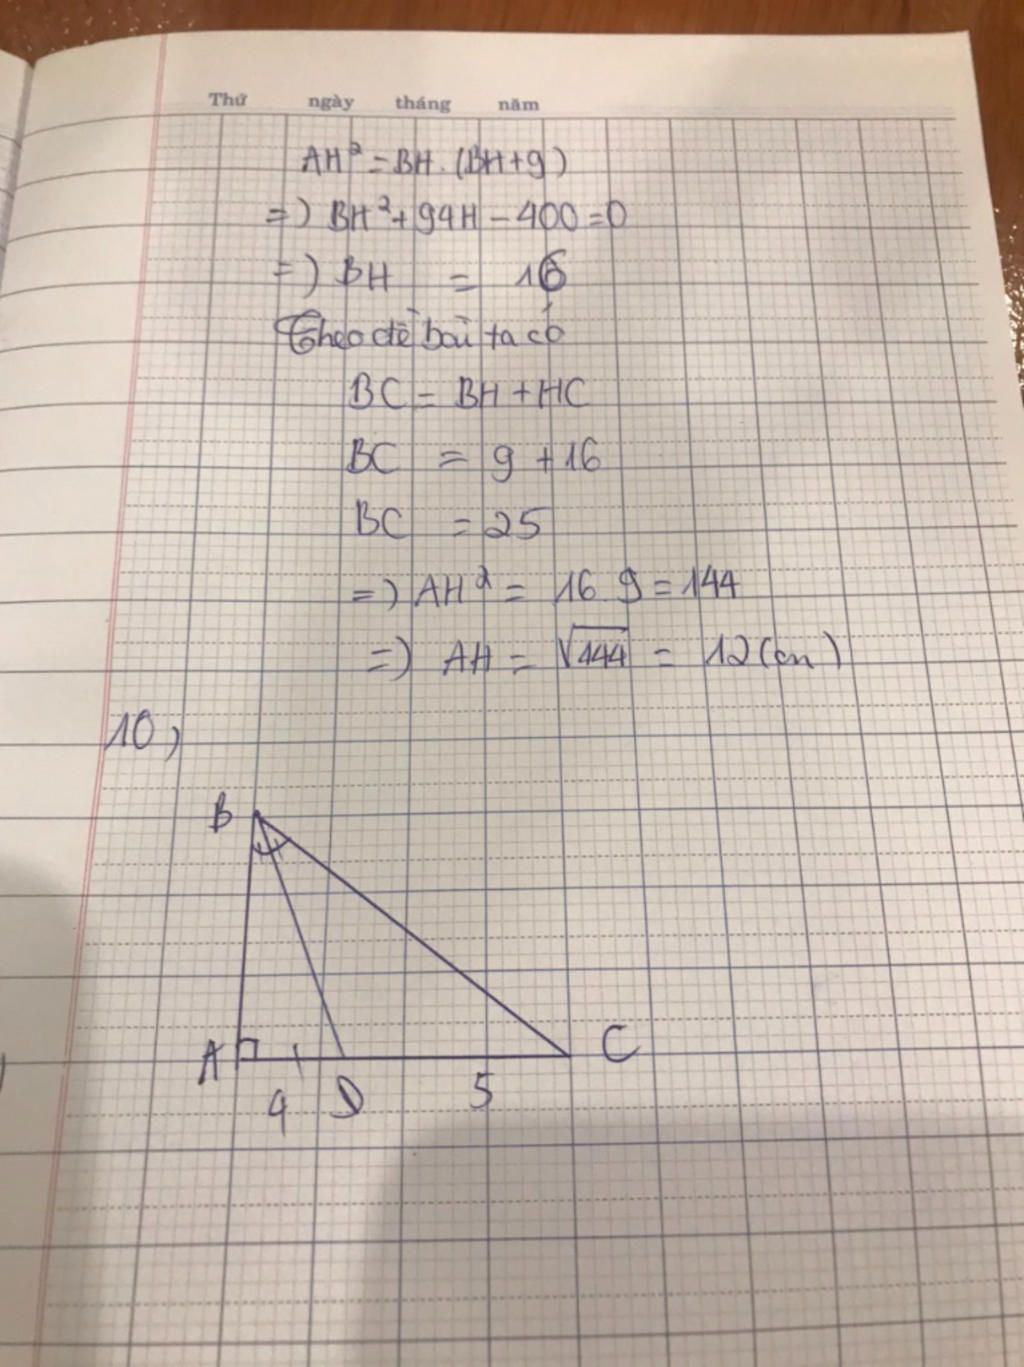 Thứ ngày tháng năm
AH² = BH . (BH + 9)
=) BH² + 94H - 400 = 0
=) BH = 16
Theo đề bài ta có
BC = BH + HC
BC = 9 + 16
BC = 25
=) AH² = 16 . 9 = 144
=) AH = √144 = 12 (cm)
10,
B
A C
4 D 5